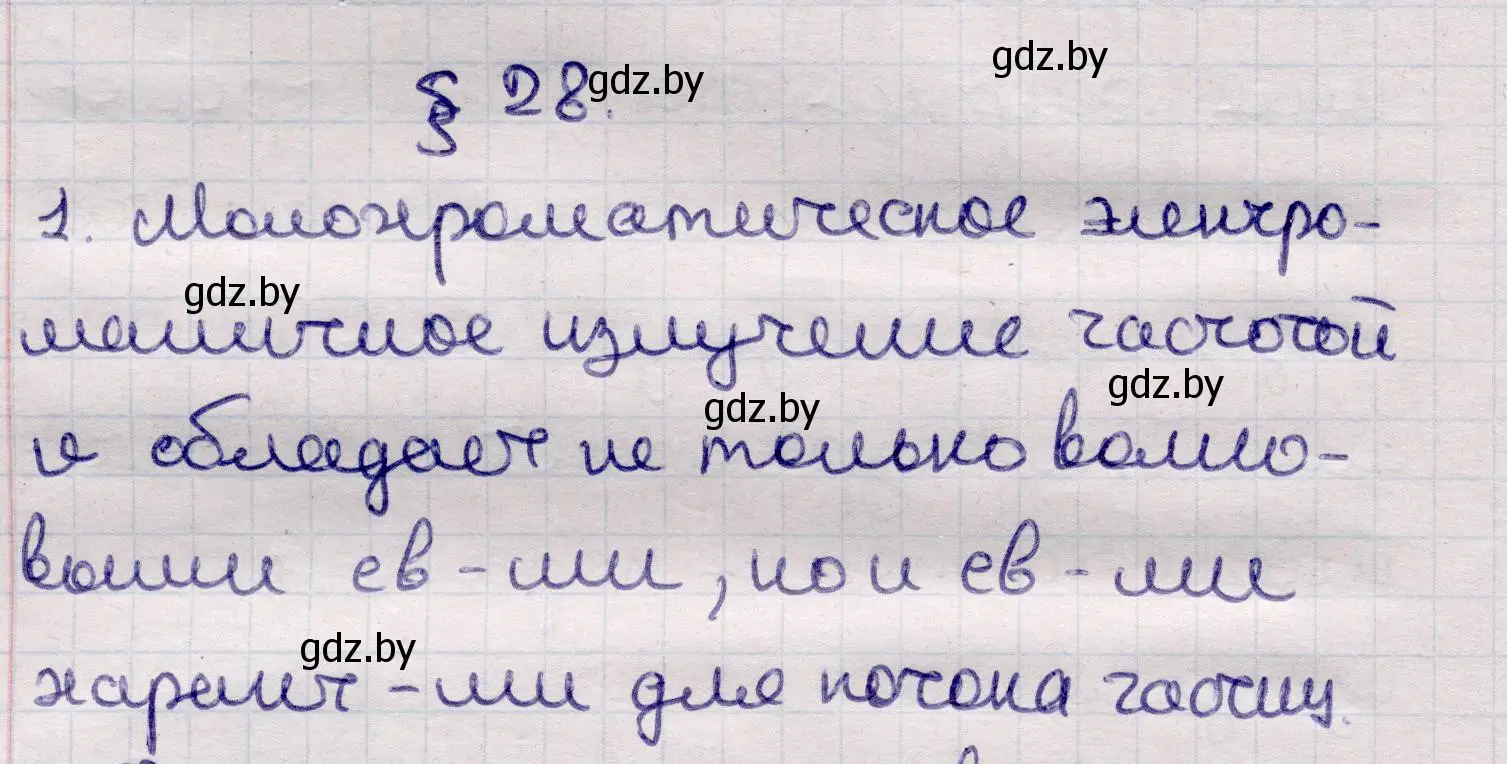 gdz.by
§ 28. gdz.by
1. Монохроматическое электро-
gdz.by
магнитное излучение частотой
gdz.by
gdz.by
ν обладает не только волно-
выми св-ми, но и св-ми
gdz.by
характ-ми для потока частиц.